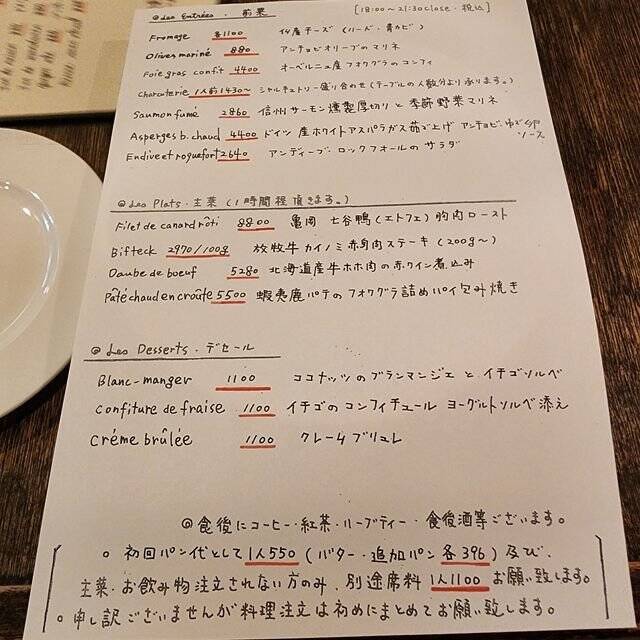 @ Les Entrées. 前菜 [18:00~21:30close・税込]
Fromage 各1100 仏産チーズ (ハード・青カビ)
Olives mariné 880 アンチョビオリーブのマリネ
Foie gras confit 4400 オーベルニュ産 フォアグラのコンフィ
Charcuterie 1人前1430~ シャルキュトリー盛り合わせ (テーブルの人数分より承ります。)
Saumon fumé 2860 信州サーモン燻製厚切りと季節野菜マリネ
Asperges b. chaud 4400 ドイツ産ホワイトアスパラガス茹で上げ アンチョビ・ゆで卵
ソース
Endive et roquefort 2640 アンディーブ・ロックフォールのサラダ
@ Les Plats・主菜 (1時間程頂きます。)
Filet de canard rôti 8800 亀岡 七谷鴨(エトフェ)胸肉ロースト
Bifteck 2970/100g 放牧牛カイノミ赤身肉ステーキ (200g~)
Daube de boeuf 5280 北海道産牛ホホ肉の赤ワイン煮込み
Pâté chaud en croûte 5500 蝦夷鹿パテのフォアグラ詰めパイ包み焼き
@ Les Desserts・デセール
Blanc-manger 1100 ココナッツのブランマンジェとイチゴソルベ
Confiture de fraise 1100 イチゴのコンフィチュール ヨーグルトソルベ添え
Créme brûlée 1100 クレームブリュレ
@ 食後にコーヒー・紅茶・ハーブティー・食後酒等ございます。
○ 初回パン代として1人550 (バター・追加パン各396) 及び、
主菜・お飲み物注文されない方のみ、別途席料1人1100お願い致します。
○ 申し訳ございませんが料理注文は初めにまとめてお願い致します。